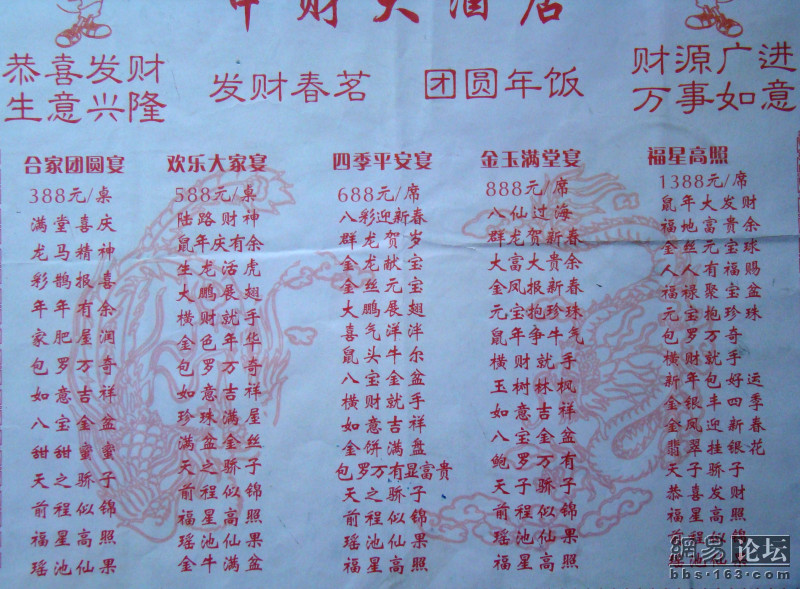 中财大酒店
恭喜发财
生意兴隆
发财春茗
团圆年饭
财源广进
万事如意
合家团圆宴
388元/桌
满堂喜庆
龙马精神
彩鹊报喜
年年有余
家肥屋润
包罗万奇
如意吉祥
八宝金盆
甜甜蜜蜜
天之骄子
前程似锦
福星高照
瑶池仙果
欢乐大家宴
588元/桌
陆路财神
鼠年庆有余
生龙活虎
大鹏展翅
横财就手
金色年华
包罗万奇
如意吉祥
珍珠满屋
满盆金丝
天之骄子
前程似锦
福星高照
瑶池仙果
金牛满盆
四季平安宴
688元/席
八彩迎新春
群龙贺岁
金龙献宝
金丝元宝
大鹏展翅
喜气洋洋
鼠头牛尔
八宝金盆
横财就手
如意吉祥
金饼满盘
包罗万有显富贵
天之骄子
前程似锦
瑶池仙果
福星高照
金玉满堂宴
888元/席
八仙过海
群龙贺新春
大富大贵余
金凤报新春
元宝抱珍珠
鼠年争牛气
横财就手
玉树林枫
如意吉祥
八宝金盆
鲍罗万有
天子骄子
前程似锦
瑶池仙果
福星高照
福星高照
1388元/席
鼠年大发财
福地富贵余
金丝元宝球
人人有福赐
福禄聚宝盆
元宝抱珍珠
包罗万奇
横财就手
新年包好运
金银丰四季
金凤迎新春
翡翠挂银花
天子骄子
恭喜发财
福星高照
前程似锦
瑶池仙果
網易论坛
bbs.163.com